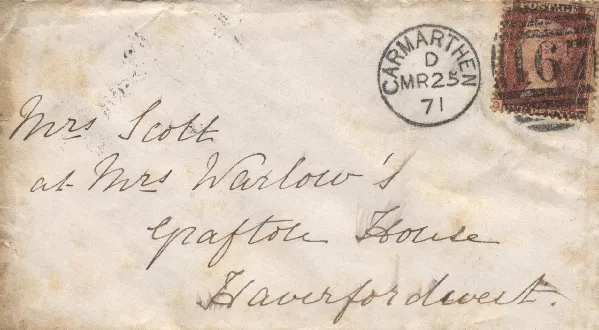 POSTAGE
CARMARTHEN
D
MR 25
71
167
Mrs Scott
at Mrs Warlow's
Grafton House
Haverfordwest.